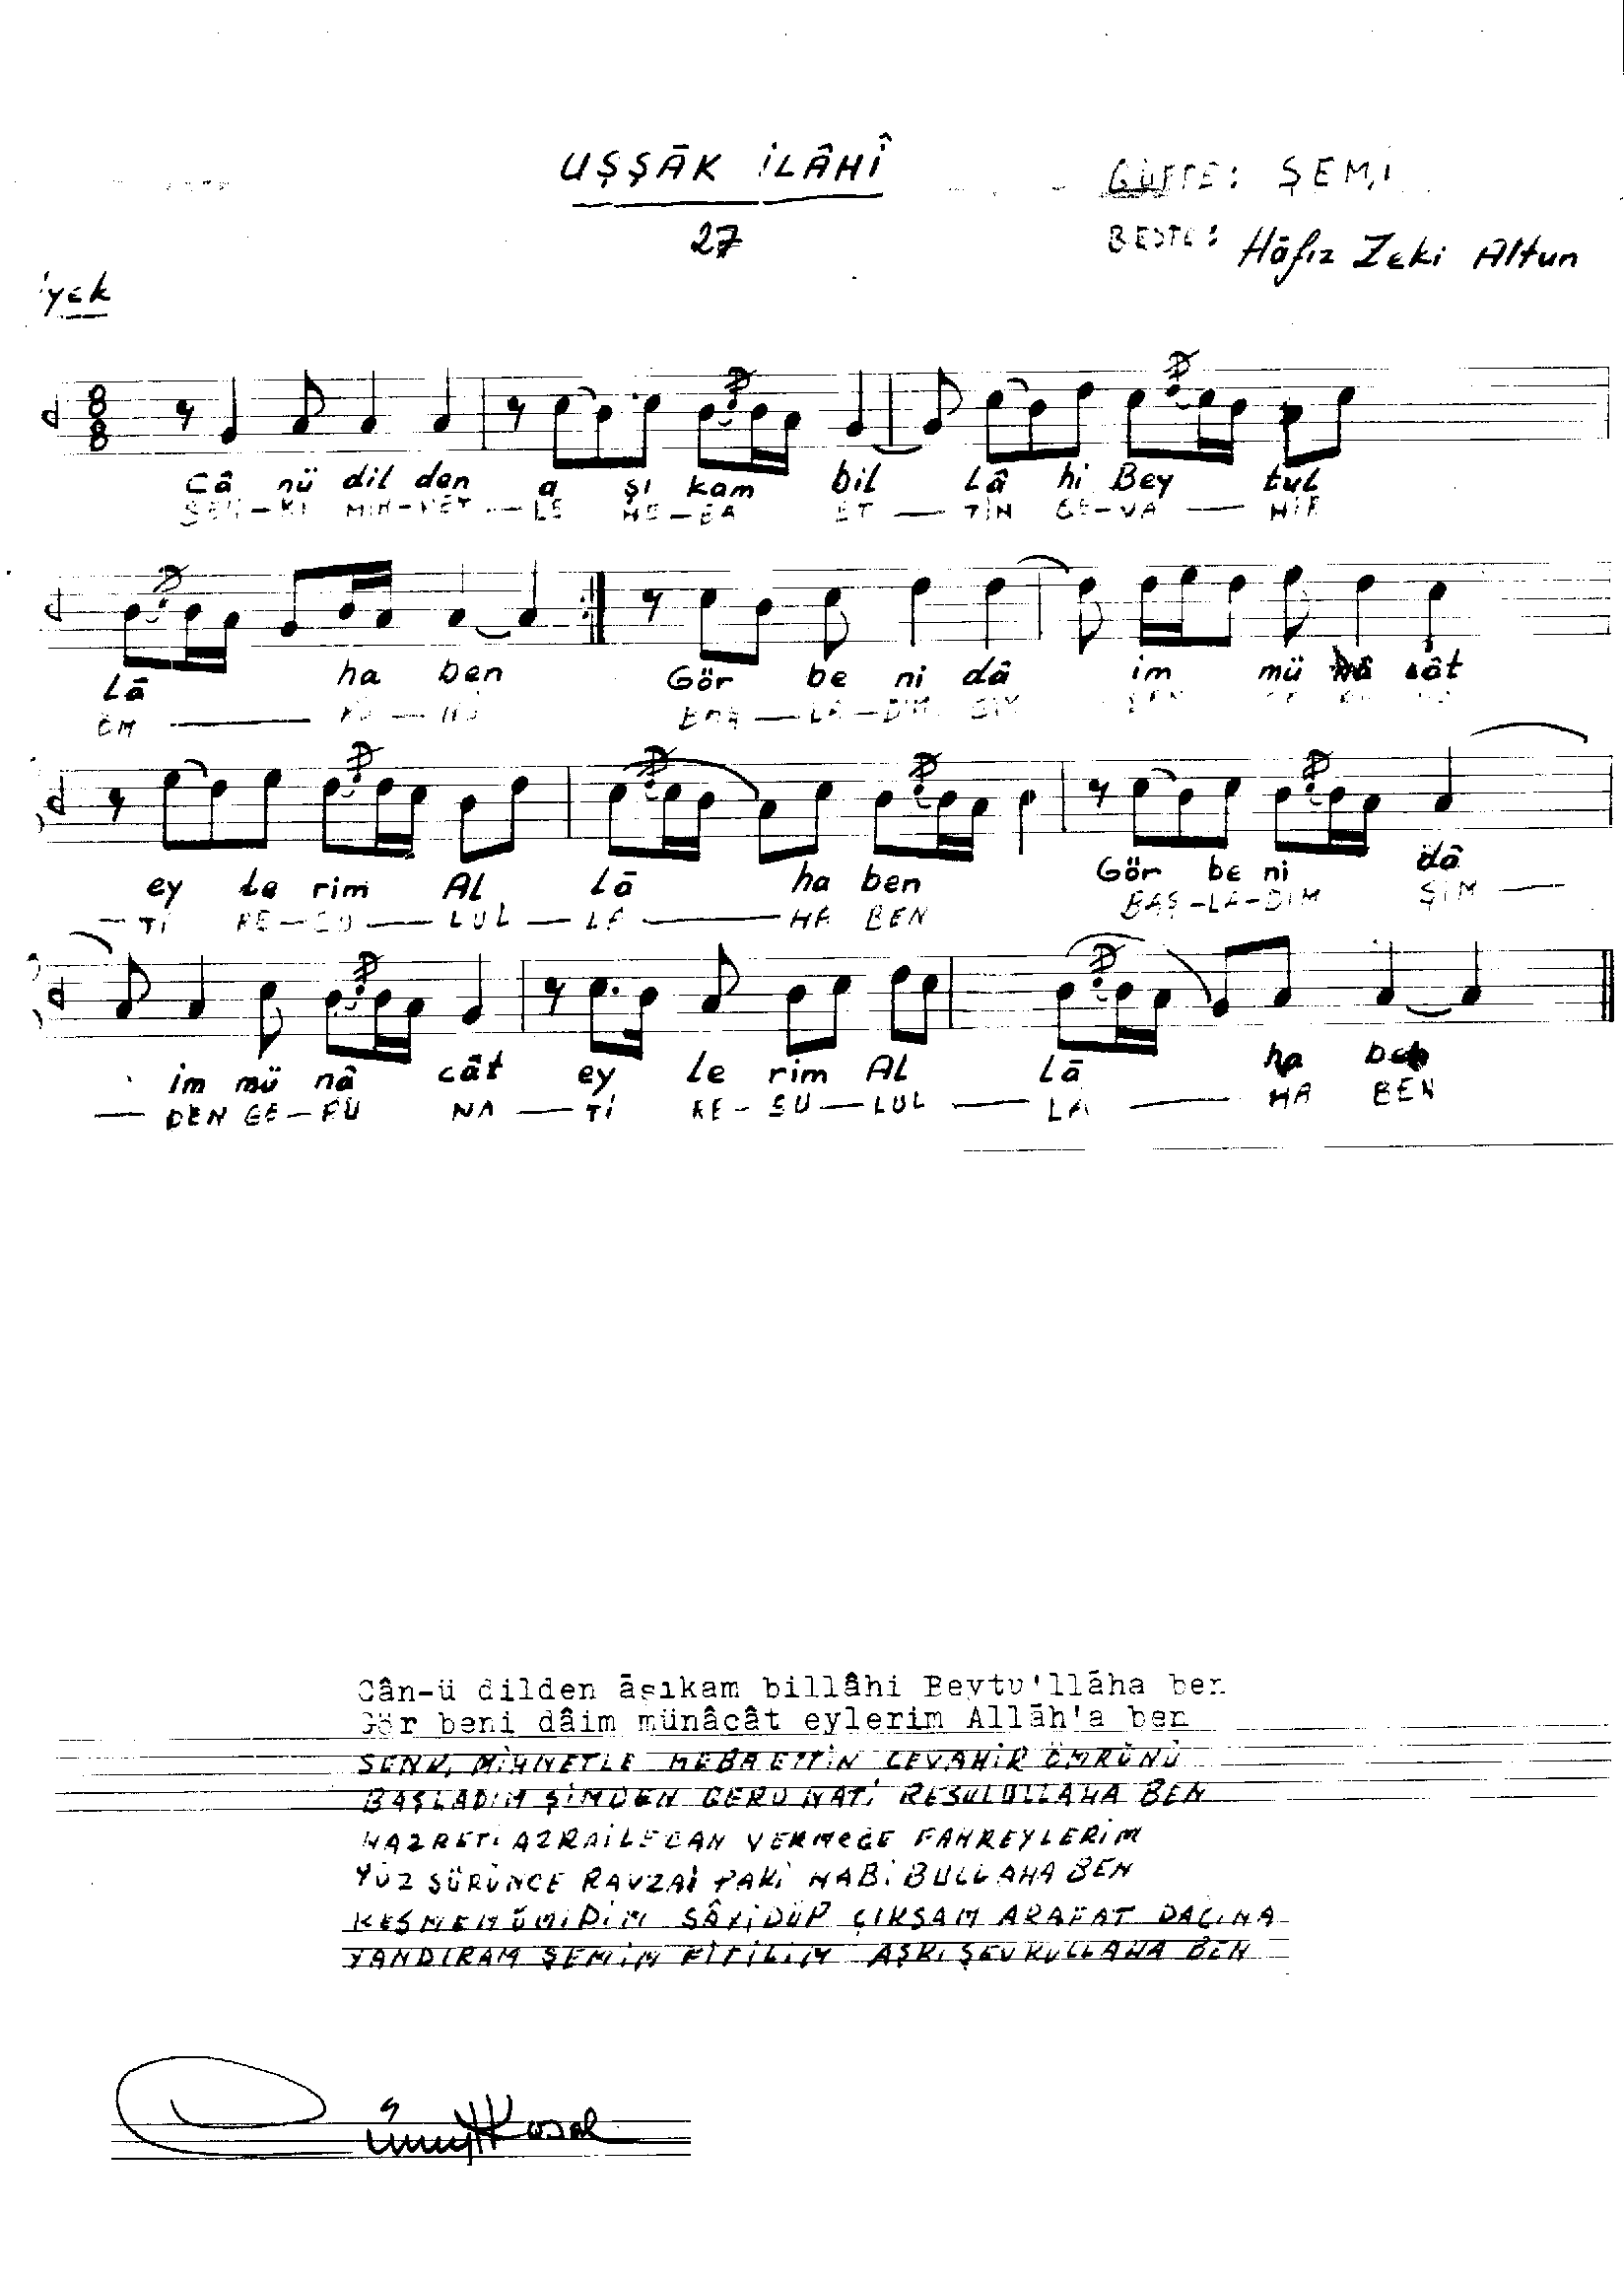 UŞŞÂK İLÂHÎ
GÜFTE: ŞEMİ
27
BESTE: Hâfız Zeki Altun
yek
8
8
Câ nü dil den a şı kam bil Lâ hi Bey tul
SEN-Kİ MİH-NET-LE HE-BA ET-TİN CE-VA-HİR
Lâ ha ben Gör be ni dâ im mü nâ cât
ÖM RÜ-NÜ BAŞ-LA-DIM ŞİM
ey le rim AL Lâ ha ben Gör be ni dâ
-Tİ RE-SU-LUL-LA-HA BEN BAŞ-LA-DIM ŞİM-
im mü nâ cât ey le rim AL Lâ ha ben
-DEN GE-RÜ NA-Tİ RE-SU-LUL-LA-HA BEN
Cân-ü dilden âşıkam billâhi Beytu'llâha ben
Gör beni dâim münâcât eylerim Allâh'a ben
MİHNETLE HEBA ETTİN CEVAHİR ÖMRÜNÜ
BAŞLADIM ŞİMDEN GERU NATİ RESULULLAHA BEN
HAZRETİ AZRAİLE CAN VERMEGE FAHREYLERİM
YÜZ SÜRÜNCE RAVZAİ PAKİ HABİBULLAHA BEN
KESMEM ÜMİDİM SÂYİDÜP ÇIKSAM ARAFAT DAĞINA
YANDIRAM ŞEMİM FİTİLİM AŞKI ŞEVKULLAHA BEN